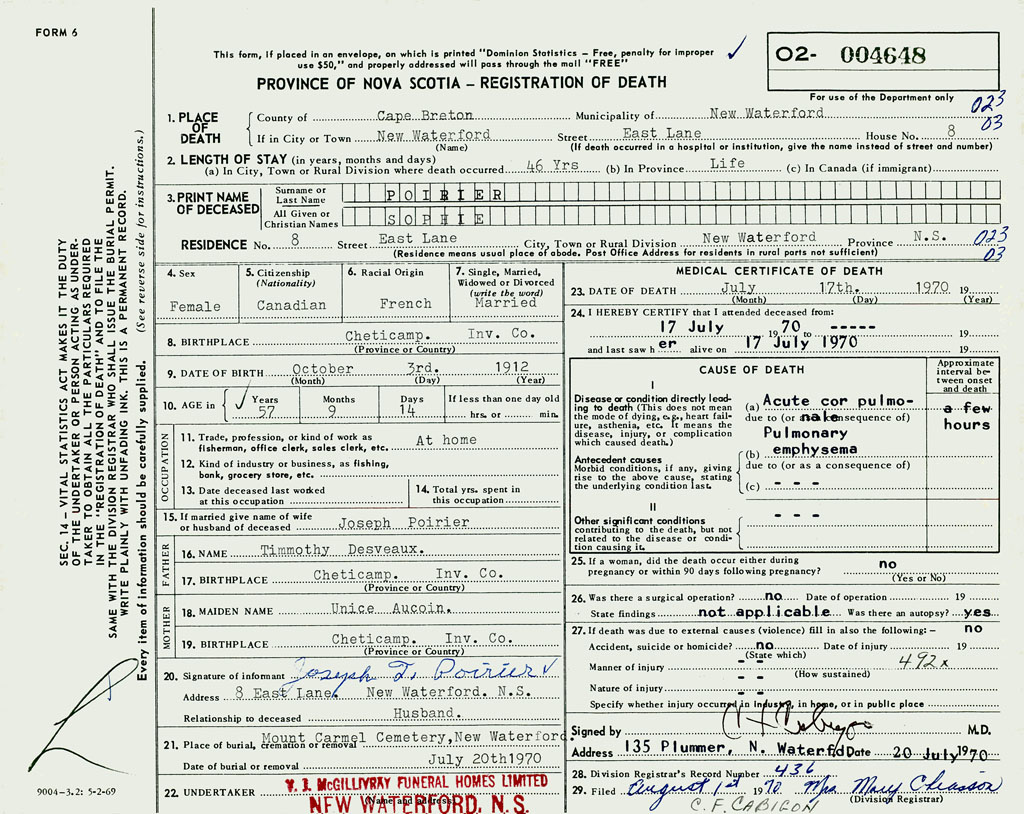 FORM 6
This form, if placed in an envelope, on which is printed "Dominion Statistics – Free, penalty for improper
use $50," and properly addressed will pass through the mail "FREE"
02- 004648
PROVINCE OF NOVA SCOTIA – REGISTRATION OF DEATH
For use of the Department only
023
03
1. PLACE OF DEATH
County of Cape Breton Municipality of New Waterford
If in City or Town New Waterford Street East Lane House No. 8
(Name) (If death occurred in a hospital or institution, give the name instead of street and number)
2. LENGTH OF STAY (in years, months and days)
(a) In City, Town or Rural Division where death occurred 46 Yrs (b) In Province Life (c) In Canada (if immigrant)
3. PRINT NAME OF DECEASED
Surname or Last Name POIRIER
All Given or Christian Names SOPHIE
RESIDENCE No. 8 Street East Lane City, Town or Rural Division New Waterford Province N.S. 023
(Residence means usual place of abode. Post Office Address for residents in rural parts not sufficient) 03
4. Sex Female
5. Citizenship (Nationality) Canadian
6. Racial Origin French
7. Single, Married, Widowed or Divorced (write the word) Married
8. BIRTHPLACE Cheticamp. Inv. Co.
(Province or Country)
9. DATE OF BIRTH October 3rd. 1912
(Month) (Day) (Year)
10. AGE in Years Months Days If less than one day old
57 9 14 hrs. or min.
OCCUPATION
11. Trade, profession, or kind of work as fisherman, office clerk, sales clerk, etc. At home
12. Kind of industry or business, as fishing, bank, grocery store, etc.
13. Date deceased last worked at this occupation
14. Total yrs. spent in this occupation
15. If married give name of wife or husband of deceased Joseph Poirier
FATHER
16. NAME Timmothy Desveaux.
17. BIRTHPLACE Cheticamp. Inv. Co.
(Province or Country)
MOTHER
18. MAIDEN NAME Unice Aucoin.
19. BIRTHPLACE Cheticamp. Inv. Co.
(Province or Country)
20. Signature of informant Joseph T. Poirier
Address 8 East Lane. New Waterford. N.S.
Relationship to deceased Husband.
21. Place of burial, cremation or removal Mount Carmel Cemetery, New Waterford.
Date of burial or removal July 20th1970
22. UNDERTAKER V. J. McGILLIVRAY FUNERAL HOMES LIMITED
(Name and address)
NEW WATERFORD, N. S.
MEDICAL CERTIFICATE OF DEATH
23. DATE OF DEATH July 17th. 1970 19
(Month) (Day) (Year)
24. I HEREBY CERTIFY that I attended deceased from:
17 July 1970 to ----- 19
and last saw h er alive on 17 July 1970 19
CAUSE OF DEATH
Approximate interval between onset and death
I
Disease or condition directly leading to death (This does not mean the mode of dying, e.g., heart failure, asthenia, etc. It means the disease, injury, or complication which caused death.)
(a) Acute cor pulmo-
due to (or as a consequence of) nale
a few hours
Antecedent causes
Morbid conditions, if any, giving rise to the above cause, stating the underlying condition last.
Pulmonary
(b) emphysema
due to (or as a consequence of)
(c) - - -
II
Other significant conditions
contributing to the death, but not related to the disease or condition causing it.
- - -
25. If a woman, did the death occur either during pregnancy or within 90 days following pregnancy? no
(Yes or No)
26. Was there a surgical operation? no Date of operation 19
State findings not applicable Was there an autopsy? yes
27. If death was due to external causes (violence) fill in also the following:– no
Accident, suicide or homicide? no Date of injury 19
(State which) 492x
Manner of injury - -
(How sustained)
Nature of injury - -
Specify whether injury occurred in Industry, in home, or in public place - -
Signed by M.D.
Address 135 Plummer, N. Waterfd Date 20 July 1970
28. Division Registrar's Record Number 436
29. Filed August 1st 1970 Mrs Mary Chiasson
(Division Registrar)
C. F. CABIGON
SEC. 14 – VITAL STATISTICS ACT MAKES IT THE DUTY
OF THE UNDERTAKER OR PERSON ACTING AS UNDER-
TAKER TO OBTAIN ALL THE PARTICULARS REQUIRED
IN THE "REGISTRATION OF DEATH" AND TO FILE THE
SAME WITH THE DIVISION REGISTRAR WHO SHALL ISSUE THE BURIAL PERMIT.
WRITE PLAINLY WITH UNFADING INK. THIS IS A PERMANENT RECORD.
Every item of information should be carefully supplied. (See reverse side for instructions.)
9004–3.2: 5-2-69